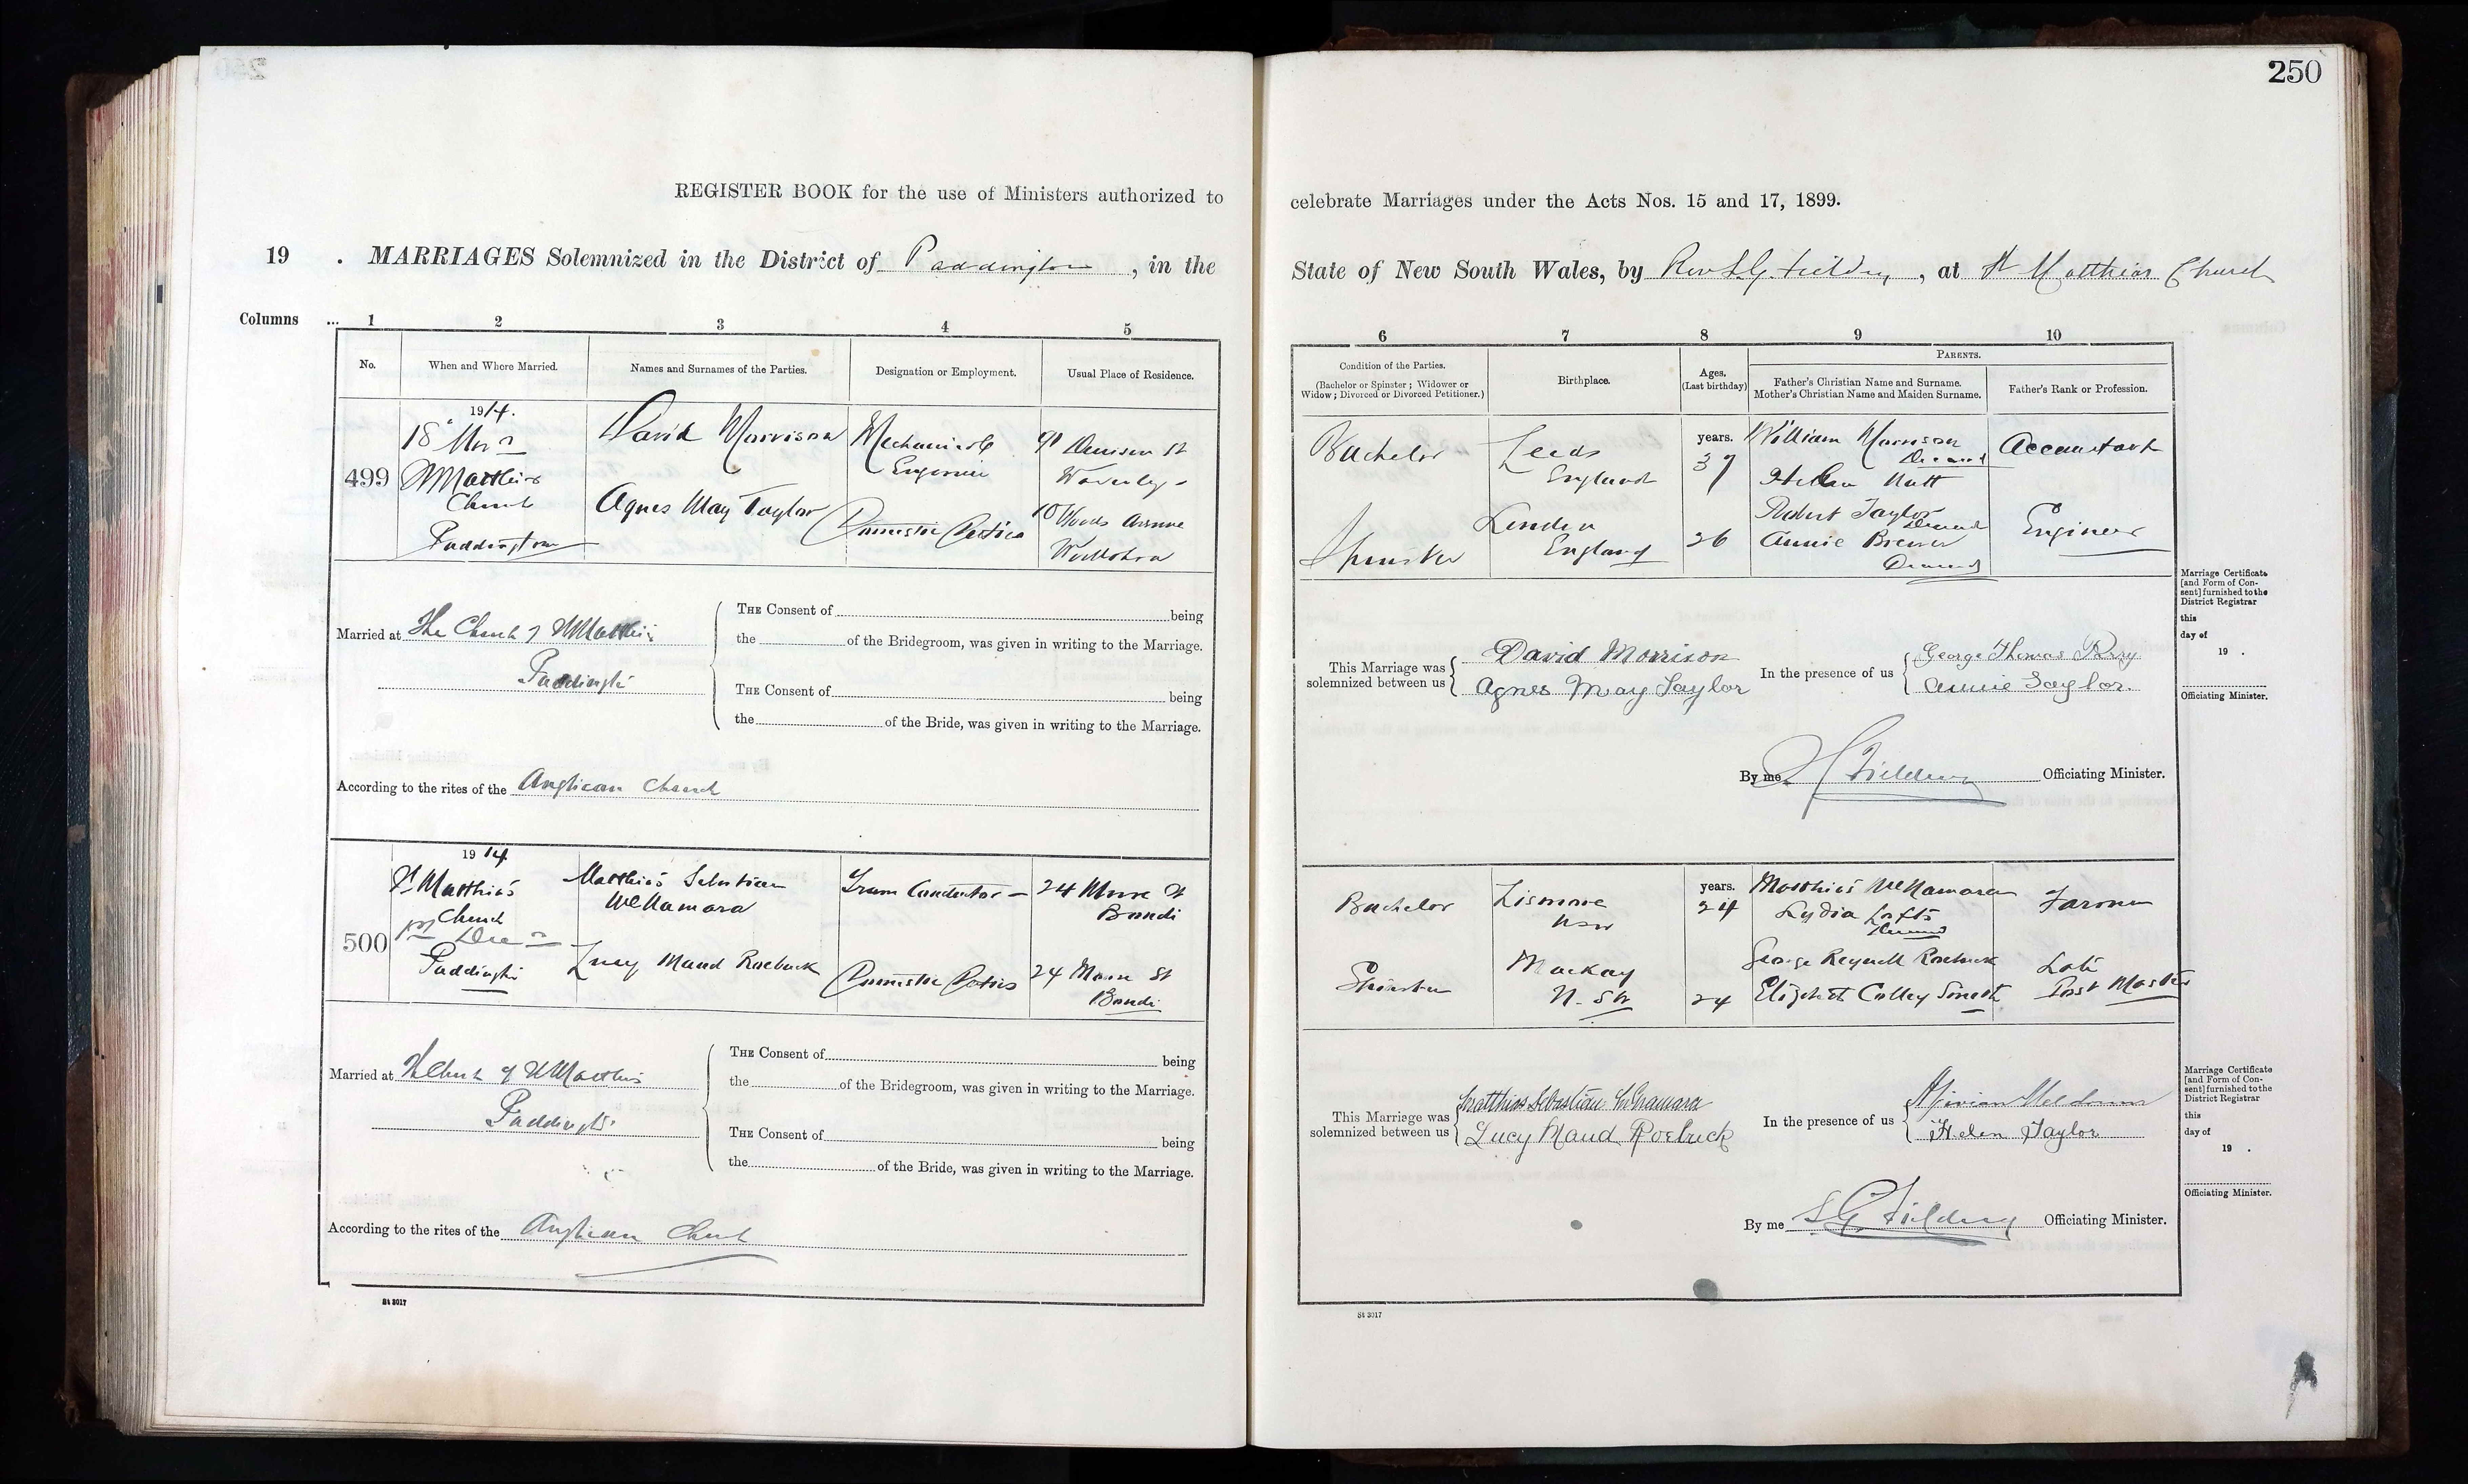 250
REGISTER BOOK for the use of Ministers authorized to
19 . MARRIAGES Solemnized in the District of Paddington, in the
Columns ... 1 2 3 4 5
No. When and Where Married. Names and Surnames of the Parties. Designation or Employment. Usual Place of Residence.
1914.
499
18
St Matthias
Church
Paddington
David Morrison
Mechanical
Engineer
91 Denison St
Waverley
Agnes May Taylor
Domestic Duties
10 Woods Avenue
Woollahra
Married at The Church of St Matthias
Paddington
THE Consent of being
the of the Bridegroom, was given in writing to the Marriage.
THE Consent of being
the of the Bride, was given in writing to the Marriage.
According to the rites of the Anglican Church
1914
500
St Matthias
Church
1st Dec
Paddington
Matthias Sebastian
McNamara
Tram Conductor
24 Moore St
Bondi
Lucy Maud Roebuck
Domestic Duties
24 Moore St
Bondi
Married at Church of St Matthias
Paddington
THE Consent of being
the of the Bridegroom, was given in writing to the Marriage.
THE Consent of being
the of the Bride, was given in writing to the Marriage.
According to the rites of the Anglican Church
St 3017
250
celebrate Marriages under the Acts Nos. 15 and 17, 1899.
State of New South Wales, by Rev S.G. Fielding, at St Matthias Church
6 7 8 9 10
PARENTS.
Condition of the Parties.
(Bachelor or Spinster; Widower or
Widow; Divorced or Divorced Petitioner.)
Birthplace.
Ages,
(Last birthday)
Father's Christian Name and Surname.
Mother's Christian Name and Maiden Surname.
Father's Rank or Profession.
Bachelor
Leeds
England
years.
37
William Morrison
Deceased
Helen Nutt
Accountant
Spinster
London
England
26
Robert Taylor
Deceased
Annie Brewer
Deceased
Engineer
This Marriage was
solemnized between us
David Morrison
Agnes May Taylor
In the presence of us
George Thomas Perry
Annie Taylor.
By me S G Fielding Officiating Minister.
Marriage Certificate
[and Form of Con-
sent] furnished to the
District Registrar
this
day of
19 .
Officiating Minister.
Bachelor
Lismore
NSW
years.
24
Matthias McNamara
Lydia Lofts
Deceased
Farmer
Spinster
Mackay
N. SW
24
George Reynell Roebuck
Elizabeth Colley Smith
Late
Post Master
This Marriage was
solemnized between us
Matthias Sebastian McNamara
Lucy Maud Roebuck
In the presence of us
Vivian Meldrum
Helen Taylor
By me S G Fielding Officiating Minister.
Marriage Certificate
[and Form of Con-
sent] furnished to the
District Registrar
this
day of
19 .
Officiating Minister.
St 3017